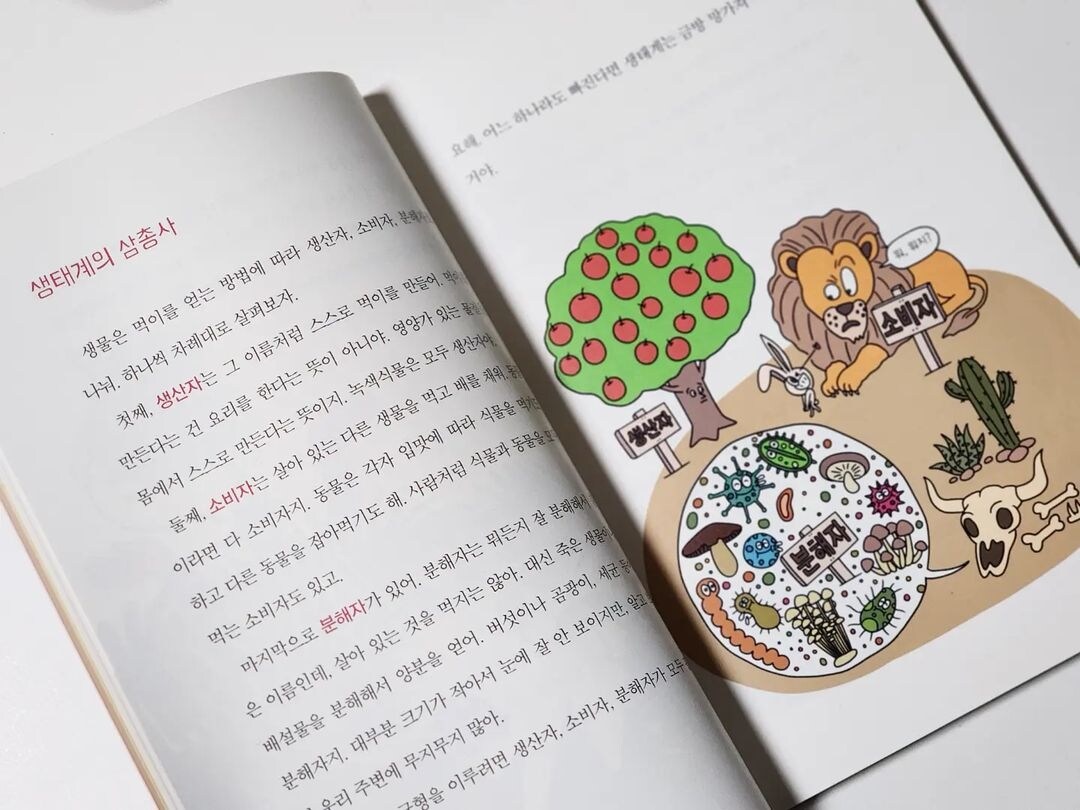 생태계의 삼총사
생물은 먹이를 얻는 방법에 따라 생산자, 소비자, 분해자
나눠. 하나씩 차례대로 살펴보자.
첫째, 생산자는 그 이름처럼 스스로 먹이를 만들어. 먹이
만든다는 건 요리를 한다는 뜻이 아니야. 영양가 있는 물질
몸에서 스스로 만든다는 뜻이지. 녹색식물은 모두 생산자야.
둘째, 소비자는 살아 있는 다른 생물을 먹고 배를 채워. 동물
이라면 다 소비자지. 동물은 각자 입맛에 따라 식물을
하고 다른 동물을 잡아먹기도 해. 사람처럼 식물과 동물을
먹는 소비자도 있고.
마지막으로 분해자가 있어. 분해자는 뭐든지 잘 분해해서
은 이름인데, 살아 있는 것을 먹지는 않아. 대신 죽은 생물이
배설물을 분해해서 양분을 얻어. 버섯이나 곰팡이, 세균 등
분해자지. 대부분 크기가 작아서 눈에 잘 안 보이지만, 알고
우리 주변에 무지무지 많아.
균형을 이루려면 생산자, 소비자, 분해자가 모두
요해. 어느 하나라도 빠진다면 생태계는 금방 망가져
거야.
뭐, 뭐지?
소비자
생산자
분해자